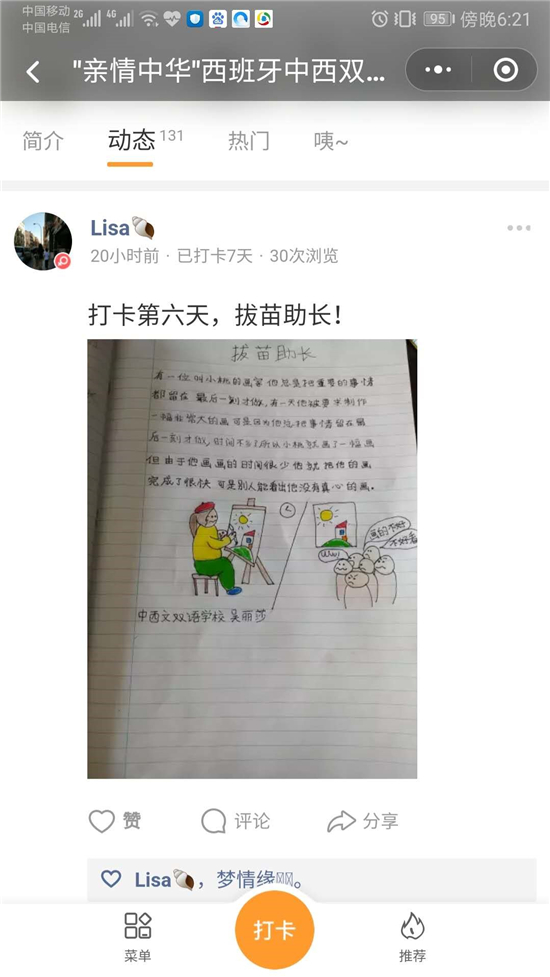 中国移动 2G 4G
中国电信
95 傍晚6:21
"亲情中华"西班牙中西双...
简介 动态 131 热门 咦~
Lisa
20小时前 · 已打卡7天 · 30次浏览
打卡第六天，拔苗助长！
拔苗助长
有一位叫小桃的画家他总是把重要的事情
都留在最后一刻才做，有一天他被要求制作
一幅非常大的画可是因为他总把事情留在最
后一刻才做，时间不多了所以小桃就画了一幅画
但由于他画画的时间很少他就把他的画
完成了很快 可是别人能看出他没有真心的画。
画的不好
不好看
中西文双语学校 吴丽莎
赞 评论 分享
Lisa，梦情缘
菜单 打卡 推荐